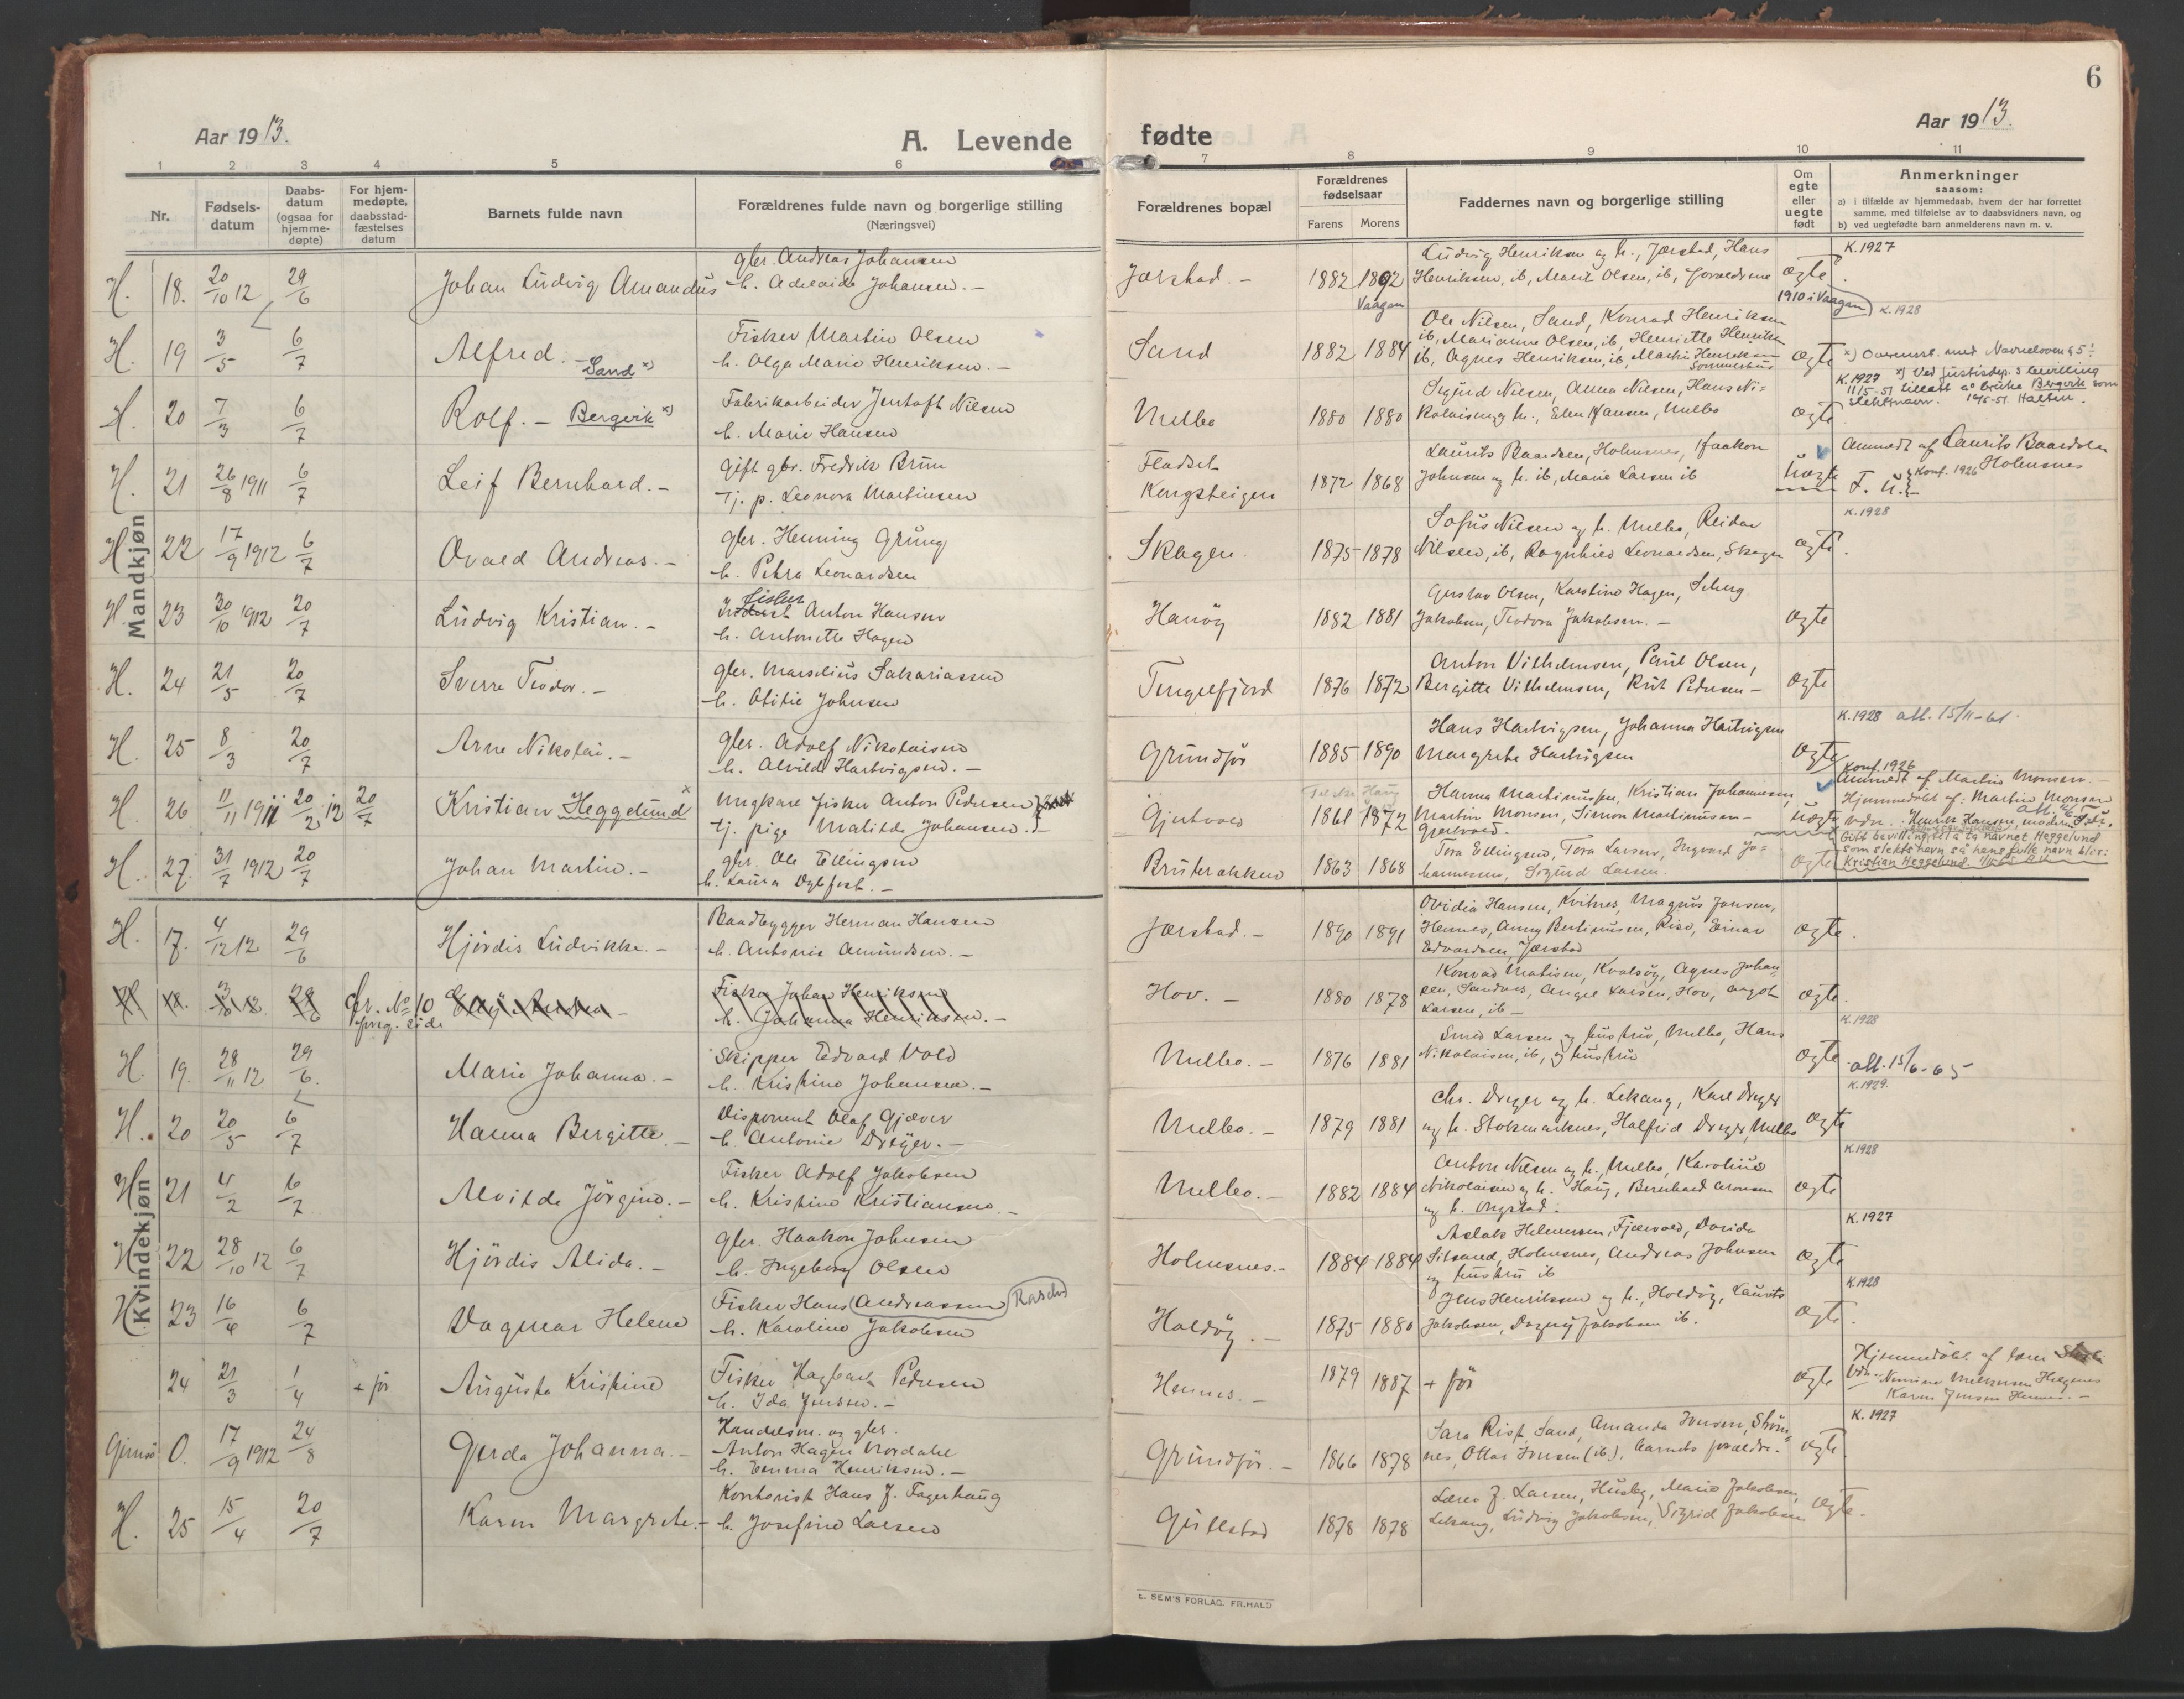 6
Aar 1913.
A. Levende
fødte
Aar 1913.
1 2 3 4 5 6 7 8 9 10 11
Nr.
Fødsels-
datum
Daabs-
datum
(ogsaa for
hjemme-
døpte)
For hjem-
medøpte,
daabsstad-
fæstelses
datum
Barnets fulde navn
Forældrenes fulde navn og borgerlige stilling
(Næringsvei)
Forældrenes bopæl
Forældrenes
fødselsaar
Farens Morens
Faddernes navn og borgerlige stilling
Om
egte
eller
uegte
født
Anmerkninger
saasom:
a) i tilfælde av hjemmedaab, hvem der har forrettet
samme, med tilføielse av to daabsvidners navn, og
b) ved uegtefødte barn anmelderens navn m. v.
Mandkjøn
H. 18. 20/10 12 29/6 Johan Ludvig Amandus
gbr. Andreas Johansen
h. Adelaide Johansen. -
Jørstad. - 1882 1892
Vaagan
Ludvig Henriksen og h., Jørstad, Hans
Henriksen, ib, Marie Olsen, ib, forældrene
ægte
K. 1927
1910 i Vaagan
H. 19 3/5 6/7 Alfred. - Sand x)
Fisker Martin Olsen
h. Olga Marie Henriksen. -
Sand 1882 1884
Ole Nilsen, Sand, Konrad Henriksen
ib, Marianne Olsen, ib, Henriette Henriksen
ib, Agnes Henriksen, ib, Martin Henriksen
ægte
K. 1928
x) Overensst. med Navneloven § 5
H. 20 7/3 6/7 Rolf. - Bergvik x)
Fabrikarbeider Jentoft Nilsen
h. Marie Hansen
Melbo 1880 1880
Sigurd Nilsen, Anna Nilsen, Hans Ni=
kolaisen og h., Elen Hansen, Melbo
ægte
K. 1927 x) Ved justisdep.s bevilling
11/5-51 tillatt å bruke Bergvik som
slektsnavn.
H. 21 26/8 1911 6/7 Leif Bernhard. -
Gift gbr. Fredrik Brun
Tj. p. Leonora Martinsen
Fladset
Kongsteigen 1872 1868
Laurits Baardsen, Holmsnes, Haakon
Johnsen og h. ib, Marie Larsen ib
Uægte
Anmeldt af Laurits Baardsen
Holmsnes
Konf. 1926
F. U.
H. 22 17/9 1912 6/7 Ovald Andreas. -
gbr. Henning Grung
h. Petra Leonardsen
Skagen. 1875 1878
Sofus Nilsen og h. Melbo, Reidar
Nilsen, ib, Ragnhild Leonardsen, Skagen
ægte.
K. 1928
H. 23 30/10 1912 20/7 Ludvig Kristian. -
fisker
Anton Hansen
h. Antonette Hagen
Hanøy 1882 1881
Gustav Olsen, Karoline Hagen,
Jakobsen, Teodora Jakobsen. -
ægte
H. 24 21/5 20/7 Sverre Teodor. -
gbr. Marselius Sakariassen
h. Otilie Johnsen
Tengelfjord 1876 1872
Anton Vilhelmsen, Paul Olsen,
Bergitte Vilhelmsen, Rut Pedersen -
ægte
H. 25 8/3 20/7 Arne Nikolai. -
gbr. Adolf Nikolaisen
h. Alvilde Hartvigsen. -
Grundfør 1885 1890
Hans Hartvigsen, Johanna Hartvigsen
Margrete Hartvigsen
ægte
K. 1928 att. 15/11-61.
H. 26 11/11 1911 20/2 12 20/7 Kristian Heggelund x
Ungkare fisker Anton Pedersen
tj. pige Matilde Johansen. -
Gjertvold 1861 1872
Hanna Martinussen, Kristian Johannesen,
Martin Monsen, Simon Martinusen -
Gjertvold.
Uægte
Konf. 1926
Anmeldt af Martin Monsen. -
Hjemmedøbt af: Martin Monsen
Gitt bevilling til å ta navnet Heggelund
som slektsnavn så hans fulle navn blir:
Kristian Heggelund
H. 27. 31/7 1912 20/7 Johan Martin. -
gbr. Ole Ellingsen
h. Laura Dybfest. -
Bruterakken 1863 1868
Tora Ellingsen, Tora Larsen, Ingvard Jo=
hannessen, Sigurd Larsen.
ægte
Kvindekjøn
H. 17. 4/12 12 29/6 Hjördis Ludvikke. -
Baadbygger Herman Hansen
h. Antonie Amundsen. -
Jørstad. - 1890 1891
Ovidia Hansen, Kvitnes, Magnus Jensen,
Hennes, Anny Bertinusen, Risø, Einar
Edvardsen, Jørstad
ægte.
cfr. No 10
foreg. side
Fisker Johan Henriksen
h. Johanna Henriksen. -
Hov. - 1880 1878
Konrad Matisen, Kvalsöy, Agnes Johan-
sen, Sandnes, Angel Larsen, Hov, Magot
Larsen, ib -
ægte.
H. 19. 28/11 12 29/6. Marie Johanna. -
Skipper Edvard Vold
h. Kristine Johansen. -
Melbo. - 1876 1881
Smed Larsen og hustru, Melbo, Hans
Nikolaisen, ib, og hustru
ægte
K. 1928
att. 15/6-65
H. 20 20/5 6/7 Hanna Bergitte. -
Disponent Olaf Gjæver
h. Antonie Dreyer. -
Melbo. - 1879 1881
Chr. Dreyer og h. Lekang, Karl Dreyer
og h. Stokmarknes, Halfrid Dreyer, Melbo
ægte
K. 1929.
H. 21 4/2 6/7 Alvilde Jörgine. -
Fisker Adolf Jakobsen
h. Kristine Kristiansen. -
Melbo. - 1882 1884
Anton Nilsen og h., Melbo, Karoline
Nikolaisen og h. Haug, Bernhard Aronsen
og h. Ongstad.
ægte
K. 1928
H. 22 28/10 12 6/7 Hjördis Alida. -
gbr. Haakon Johnsen
h. Ingeborg Olsen
Holmsnes. - 1884 1884
Aslak Helmersen, Fjærvold, Dorida
Andreas Johnsen
og hustru ib
ægte
K. 1927
H. 23 16/4 6/7 Dagmar Helene
Fisker Hans Andreassen (Rasch)
h. Karoline Jakobsen
Holdöy. - 1875 1880
Jens Henriksen og h., Holdöy, Laurits
Jakobsen, Dagny Jakobsen ib.
ægte.
K. 1928
24 21/3 1/4 + før Augusta Kristine
Fisker Hagbart Pedersen
h. Ida Jensen. -
Hennes. - 1879 1887 + før
ægte
Hjemmedöbt af lærer
Karen Jensen Hennes. -
Gimsö O. 17/9 1912 24/8 Gerda Johanna. -
Handelsm. og gbr.
Anton Hagen Nordahl
h. Emma Henriksen. -
Grundfør. - 1866 1878
Sara Rist, Sand, Amanda Jensen, Strøm-
nes, Ottar Jensen (ib), barnets forældre.
ægte.
K. 1927
H. 25 15/4 20/7 Karen Margrete. -
Kontorist Hans J. Fagerhaug
h. Josefine Larsen
Gullstad 1878 1878
Lærer J. Larsen, Husby, Marie Jakobsen,
Lekang, Ludvig Jakobsen, Sigrid Jakobsen
ægte.
E. SEM'S FORLAG, FR.HALD